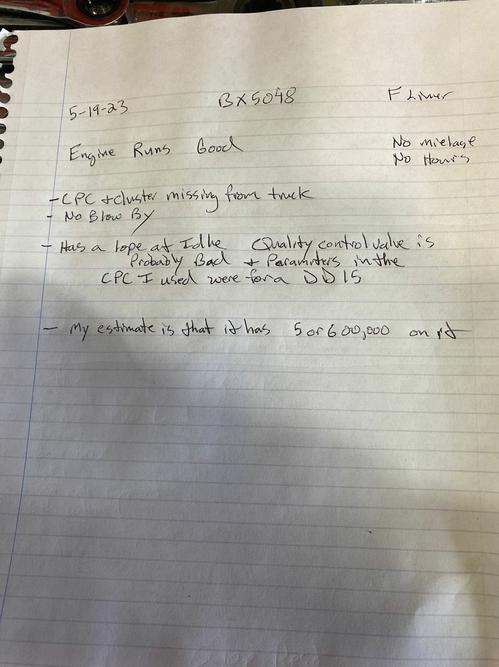 5-19-23 BX5048 F Liner
Engine Runs Good No mielage
No Hours
- CPC + cluster missing from truck
- No Blow By
- Has a lope at Idle Quality control valve is
Probably Bad + Parameters in the
CPC I used were for a DD15
- My estimate is that it has 5 or 600,000 on it